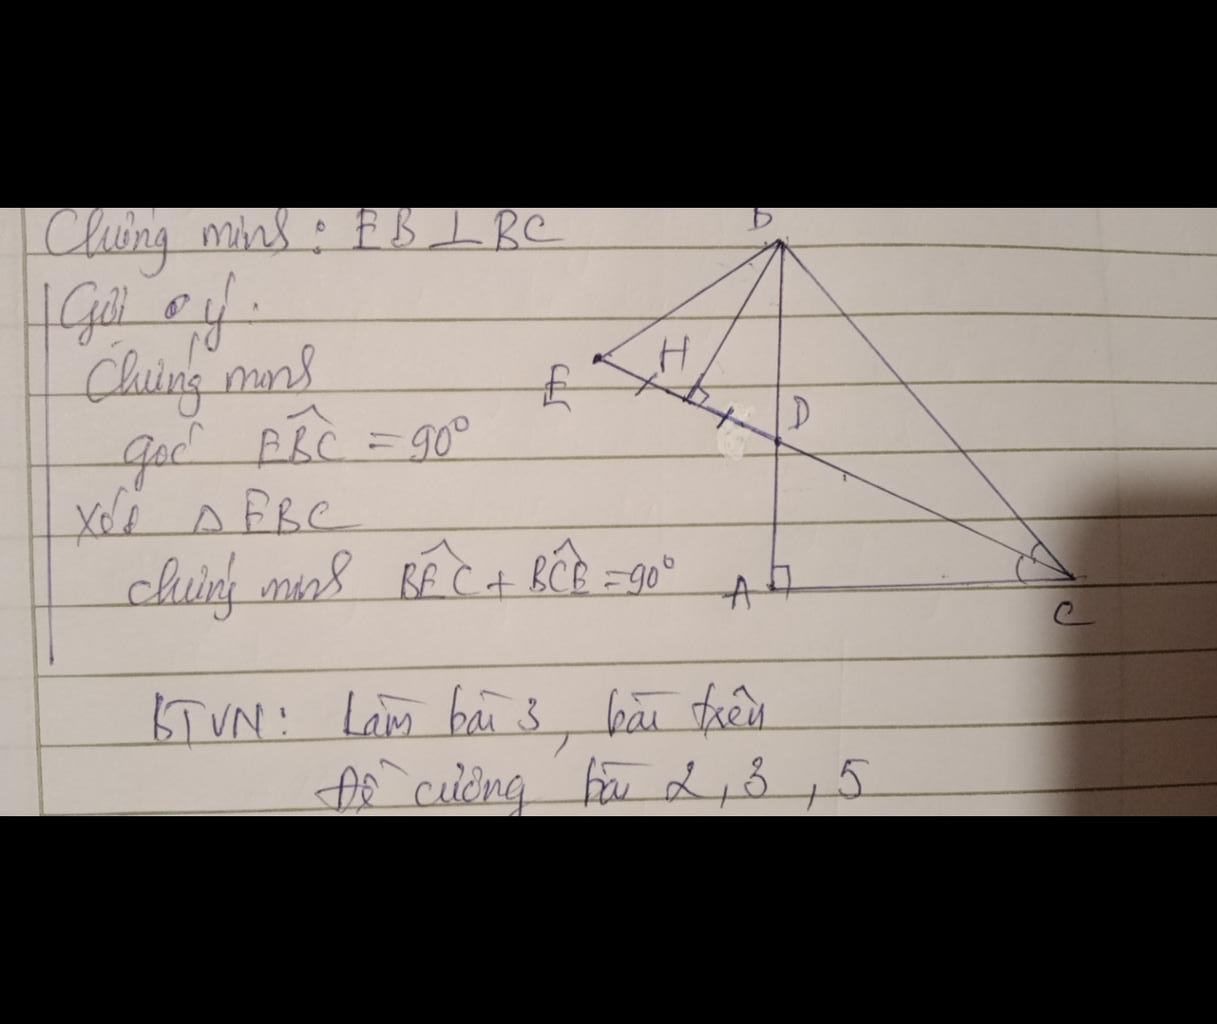 Chứng minh: EB ⊥ BC
Gợi ý.
Chứng minh
góc EBC = 90°
Xét Δ EBC
chứng minh BEC + BCE = 90°
B
E
H
D
A
C
BTVN: Làm bài 3, bài trên
Đề cương bài 2, 3, 5